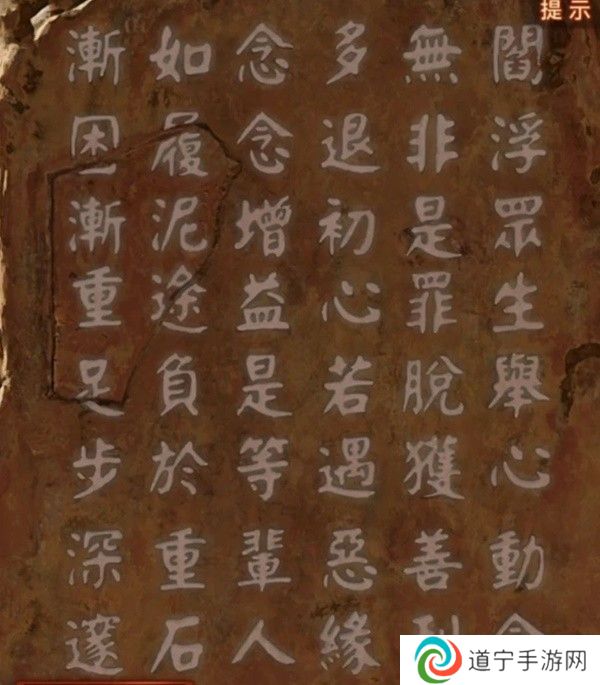 提示
閻浮眾生舉心動念
無非是罪脫獲善利
多退初心若遇惡緣
念念增益是等輩人
如履泥途負於重石
漸困漸重足步深邃
道宁手游网